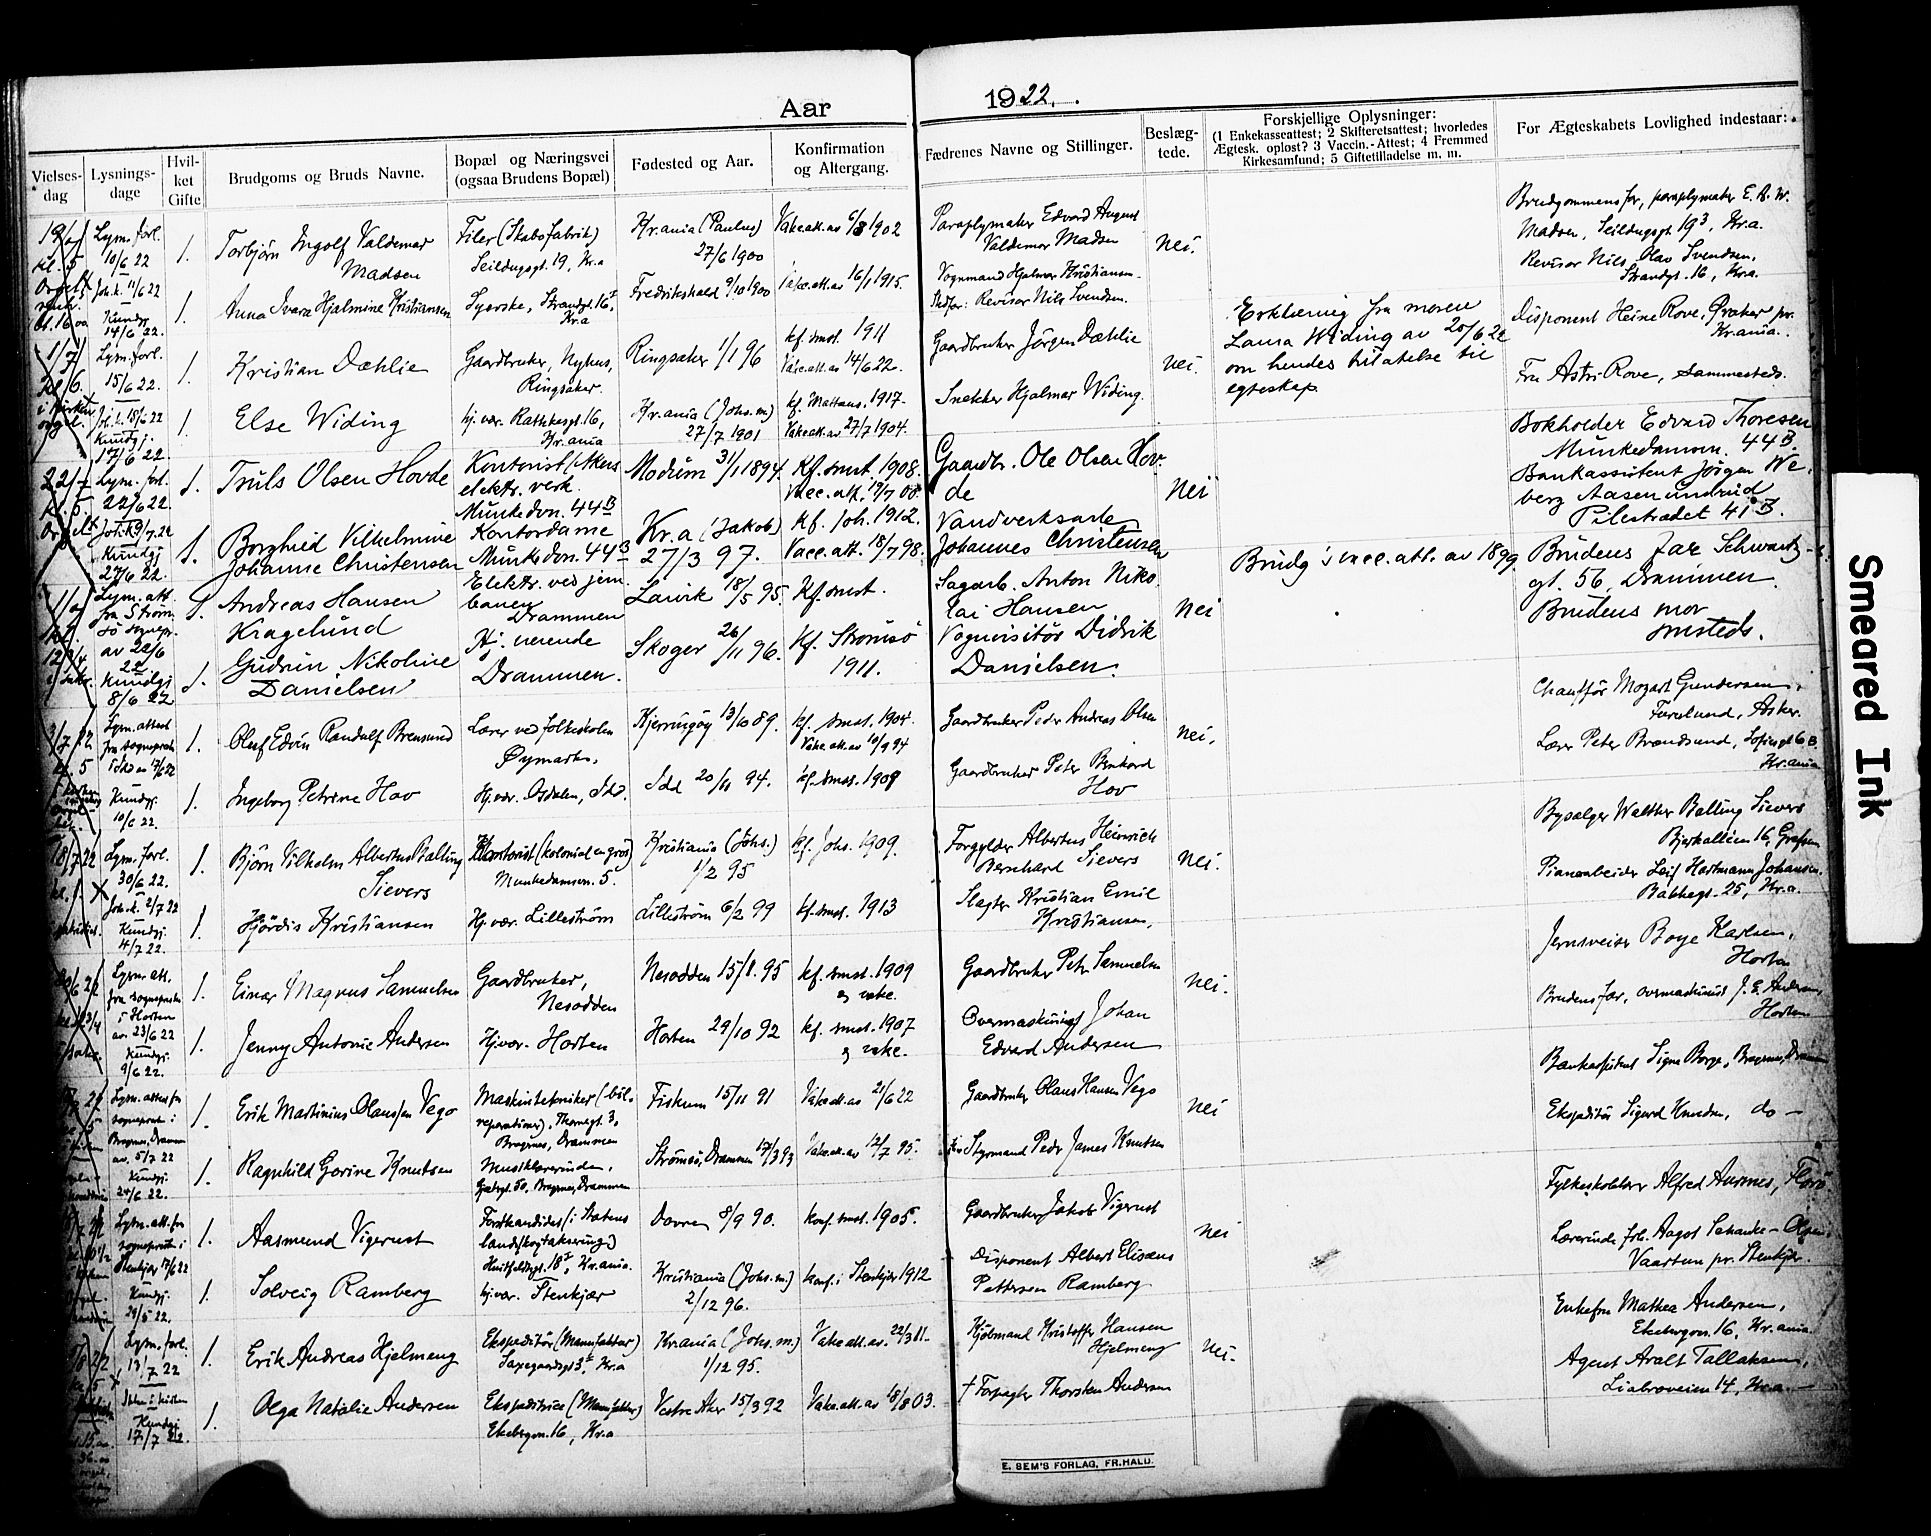 Aar 1922.
Vielses-dag
Lysnings-dage
Hvil-ket Gifte
Brudgoms og Bruds Navne.
Bopæl og Næringsvei (ogsaa Brudens Bopæl)
Fødested og Aar.
Konfirmation og Altergang.
Fædrenes Navne og Stillinger.
Beslæg-tede.
Forskjellige Oplysninger:
(1 Enkekasseattest; 2 Skifteretsattest; hvorledes
Ægtesk. opløst? 3 Vaccin.-Attest; 4 Fremmed
Kirkesamfund; 5 Giftetilladelse m. m.
For Ægteskabets Lovlighed indestaar:
Lysn. forl. 10/6 22
1.
Torbjørn Ingolf Valdemar Madsen
Filer (Skabsfabrik) Seildugsgt. 19, Kr.a
Kr.ania (Paulus) 27/6 1900
Vakc.att. av 6/8 1902
Paraplymaker Edvard August Valdemar Madsen
nei.
Brudgommens far, paraplymaker E. A. W. Madsen, Seildugsgt. 19³, Kr.a.
Joh.k. 11/6 22
Kundgj. 14/6 22.
1.
Anna Ivara Hjalmine Kristiansen
Syerske, Strandgt. 16 I Kr.a
Fredrikshald 9/10 1900
Vakc.att. av 16/1 1915.
Vognmand Hjalmar Kristiansen
Stedfar: Revisor Nils Svendsen.
Revisor Nils Olav Svendsen, Strandgt. 16, Kr.a.
1/7 kl. 6.
Lysn. forl. 15/6 22.
1.
Kristian Dæhlie
Gaardbruker, Nyhus, Ringsaker.
Ringsaker 1/1 96
kf. smst. 1911
Vakc.att. av 14/6 22.
Gaardbruker Jörgen Dæhlie
nei.
Erklæring fra moren Laura Widing av 20/6 22 om hendes tilatelse til egteskap.
Disponent Heine Rove, Øraker pr. Kr.ania.
Joh.k. 18/6 22
Kundgj. 17/6 22.
1.
Else Widing
hj.vær. Rathkesgt. 16, Kr.ania
Kr.ania (Johs.m.) 27/7 1901
kf. Mattæus, 1917.
Vakc.att. av 27/7 1904.
Snekker Hjalmar Widing.
Fru Astri Rove, sammesteds.
22/7 kl. 5.
Lysn. forl. 22/6 22.
1.
Truls Olsen Hovde
Kontorist (Akers elektr. verk. Munkedvn. 44 B
Modum 31/1 1894.
Kf. smst. 1908.
Vacc. att. 19/7 00.
Gaardbr. Ole Olsen Hovde
Nei
Bokholder Edvard Thoresen Munkedamsvn. 44 B.
Joh.k. 9/7 22
Kundgj 27/6 22.
1.
Borghild Vilhelmine Johanne Christensen
Kontordame Munkedvn. 44 B
Kr.a (Jakob) 27/3 97.
Kf. Joh. 1912.
Vacc. att. 18/7 98.
Vandverksarb. Johannes Christensen
Brudg's vacc. att. av 1899
Bankassistent Jørgen Weberg Aasenundrud Pilestrædet 41 B.
Lysn. att. fra Strømsö sognepr. av 22/6 22.
1.
Andreas Hansen Kragelund
Elektr. ved jernbanen Drammen
Larvik 18/5 95.
Kf. smst.
Sagarb. Anton Nikolai Hansen
Nei
Brudens far Schwartzgt. 56, Drammen.
Kundgj 8/6 22
1.
Gudrun Nikoline Danielsen
Hj. værende Drammen.
Skoger 26/11 96.
Kf. Strømsö 1911.
Vognvisitør Didrik Danielsen.
Brudens mor smsteds.
Lysn. attest fra sogneprsten
1.
Oluf Edvin Randulf Brensund
Lærer ved folkeskolen Øymark.
Kjerringøy 13/10 89.
kf. smst. 1904.
Vakc.att. av 10/9 94
Gaardbruker Peder Andreas Olsen
nei.
Chauffør Mozart Gundersen, Furulund, Asker.
Kundgj. 10/6 22.
1.
Ingeborg Petrine Hov
Hj.vær. Osdalen, Idd.
Idd 20/11 94.
kf. smst. 1909
Gaardbruker Peter Hov
Lærer Peter Brandsund, Sofiesgt 6 B. Kr.ania
18/7 22
Lysn. forl. 30/6 22.
1.
Bjørn Vilhelm Albertus Balling Sievers
Kontorist (kolonial en gros) Munkedamsvn. 5.
Kristiania (Johs.) 1/2 95
kf. Johs. 1909.
Forgylder Albertus Heinrich Bernhard Sievers
nei.
Bysælger Walther Balling Sievers Bjerkalléen 16, Grefsen
Joh.k. 2/7 22
Kundgj. 4/7 22.
1.
Hjördis Kristiansen
Hj.vær. Lilleström
Lilleström 6/2 99
kf. smst. 1913
Slagter Kristian Emil Kristiansen.
Pianoarbeider Leif Hartmann Johansen, Bakkegt. 25, Kr.a.
Lysn. att. fra sogneprsten i Horten av 23/6 22
1.
Einar Magnus Samuelsen
Gaardbruker, Nesodden
Nesodden 15/8. 95
kf. smst. 1909 og vakc.
Gaardbruker Petr Samuelsen
nei.
Jernsveiser Boye Karlsen, Horten
Kundgj. 9/6 22.
1.
Jenny Antonie Andersen
Hj.vær. Horten
Horten 29/10 92
kf. smst. 1907 og vakc.
Overmaskinist Johan Edvard Andersen
Brudens far, overmaskinist J. E. Andersen, Horten
Lysn. attest fra sogneprest i Bragernes, Drammen av. 5/7 22
1.
Erik Martinius Olaussen Vego
Maskintekniker (bilreparationer), Thornegt. 3, Bragernes, Drammen
Fiskum 15/11 91
Vakc.att. av 21/6 22
Gaardbruker Olaus Hansen Vego
nei
Bankassistent Signe Borge, Bragernes, Drammen
Kundgj. 24/6 22.
1.
Ragnhild Gerine Knutsen
Musiklærerinde, Bragernes, Drammen
Strømsö, Drammen 17/3 93
Vakc.att. av 12/7 95.
Styrmand Peder James Knutsen
Ekspeditør Sigurd Knudsen, do –
Lysn. att. fra sogneprsten i Stenkjær 17/6 22
1.
Aasmund Vigerust
Forstkandidat (i Statens landsskogtaksering) Huitfeldtsgt. 18 I, Kr.ania.
Dovre 8/9 90.
konf. smst. 1905.
Gaardbruker Jakob Vigerust
nei
Fylkesskoklærer Alfred Aurenes, Florö
Kundgj. 29/5 22.
1.
Solveig Ramberg
hj.vær. Stenkjær
Kristiania (Johs.m.) 2/12 96.
konf. i Stenkjær 1912
Disponent Albert Elisæus Pettersen Ramberg
Lærerinde frk. Aagot Schanke-Olsen, Vaartun pr. Stenkjær.
Lysn. forl. 13/7 22
1.
Erik Andreas Hjelmeng
Ekspeditör (Manufaktur) Saxegaardsgt 3 I, Kr.a
Kr.ania (Johs. m.) 1/12 95.
Vakc att. av. 22/3 11.
Kjøbmand Kristoffer Hansen Hjelmeng
nei.
Enkefru Mathea Andersen, Ekebergvn. 16, Kr.ania
Kundgj 17/7 22.
1.
Olga Natalie Andersen
Ekspeditrice (Manufaktur) Ekebergvn. 16, Kr.a
Vestre Aker 15/3 92
Vakc.att. av 18/8 03.
† Forpagter Thorsten Andersen
Agent Aralt Tallaksen, Liabroveien 14, Kr.a. –
E. SEM'S FORLAG, FR.HALD.
Smeared Ink